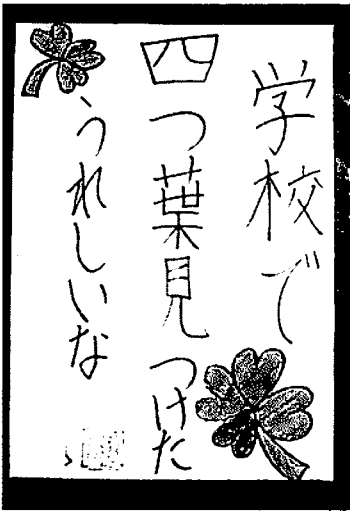 学校で
四つ葉見つけた
うれしいな